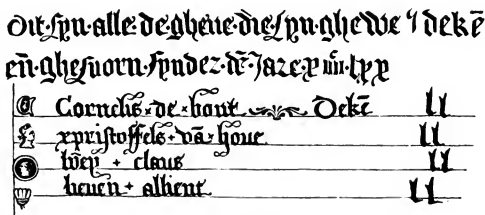 Dit syn alle de ghene die syn ghewe ī dekē
eñ ghesuorn synder dē Jare x iiii lxx
Cornelis de hont Dekē ll
xpristoffels vā houe ll
weӱ claus ll
heuen albient ll